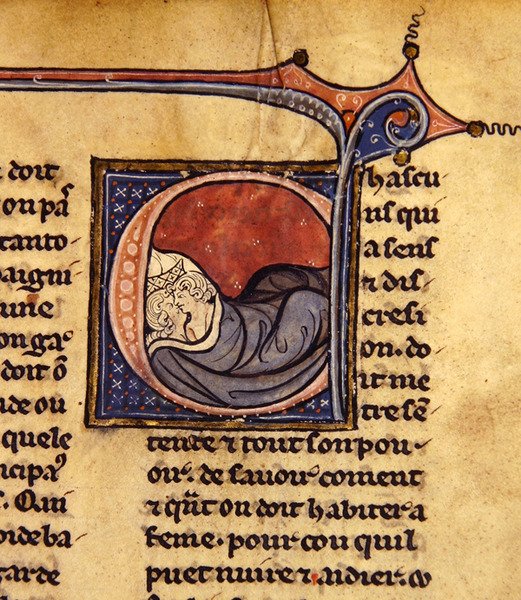 doit
on pā
tanto-
paigni
une
doit ō
ide ou
quele
Qui
garde
Chascu
ns qui
a sens
⁊ dis-
cresi
on. do
it me
tre sē
tente ⁊ tout son pou-
oir. de sauoir coment
⁊ qūt on doit habiter a
feme. pour cou quil
puet nuire ⁊ aidier.